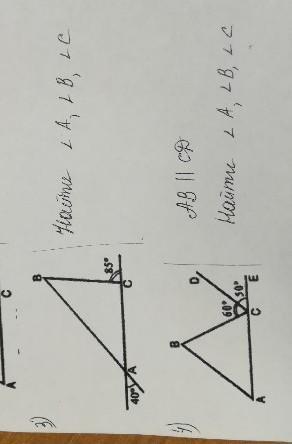 A
C
3)
Найти ∠A, ∠B, ∠C
B
85°
C
A
40°
4)
AB || CD
Найти ∠A, ∠B, ∠C
D
B
60°
50°
C
E
A